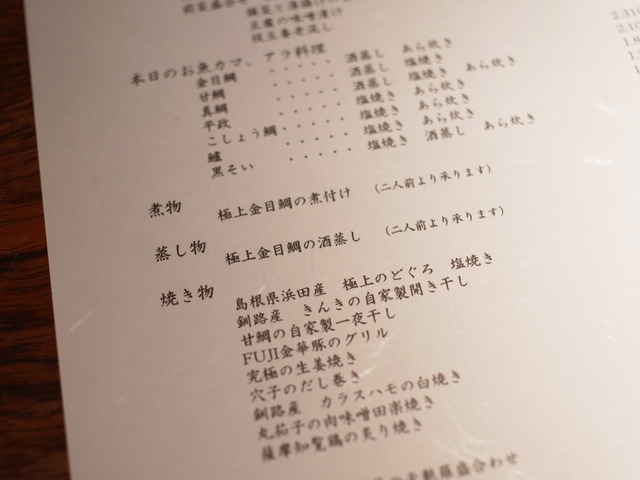 豆腐の味噌漬け
枝豆養老流し
本日のお魚カマ、アラ料理
金目鯛 ・・・・・ 酒蒸し あら炊き
甘鯛 ・・・・・ 酒蒸し 塩焼き
真鯛 ・・・・・ 酒蒸し 塩焼き あら炊き
平政 ・・・・・ 塩焼き あら炊き
こしょう鯛 ・・・・・ 塩焼き あら炊き
鱸 ・・・・・ 塩焼き あら炊き
黒そい ・・・・・ 塩焼き 酒蒸し あら炊き
煮物 極上金目鯛の煮付け (二人前より承ります)
蒸し物 極上金目鯛の酒蒸し (二人前より承ります)
焼き物 島根県浜田産 極上のどぐろ 塩焼き
釧路産 きんきの自家製開き干し
甘鯛の自家製一夜干し
FUJI金華豚のグリル
究極の生姜焼き
穴子のだし巻き
釧路産 カラスハモの白焼き
丸茄子の肉味噌田楽焼き
薩摩知覧鶏の炙り焼き